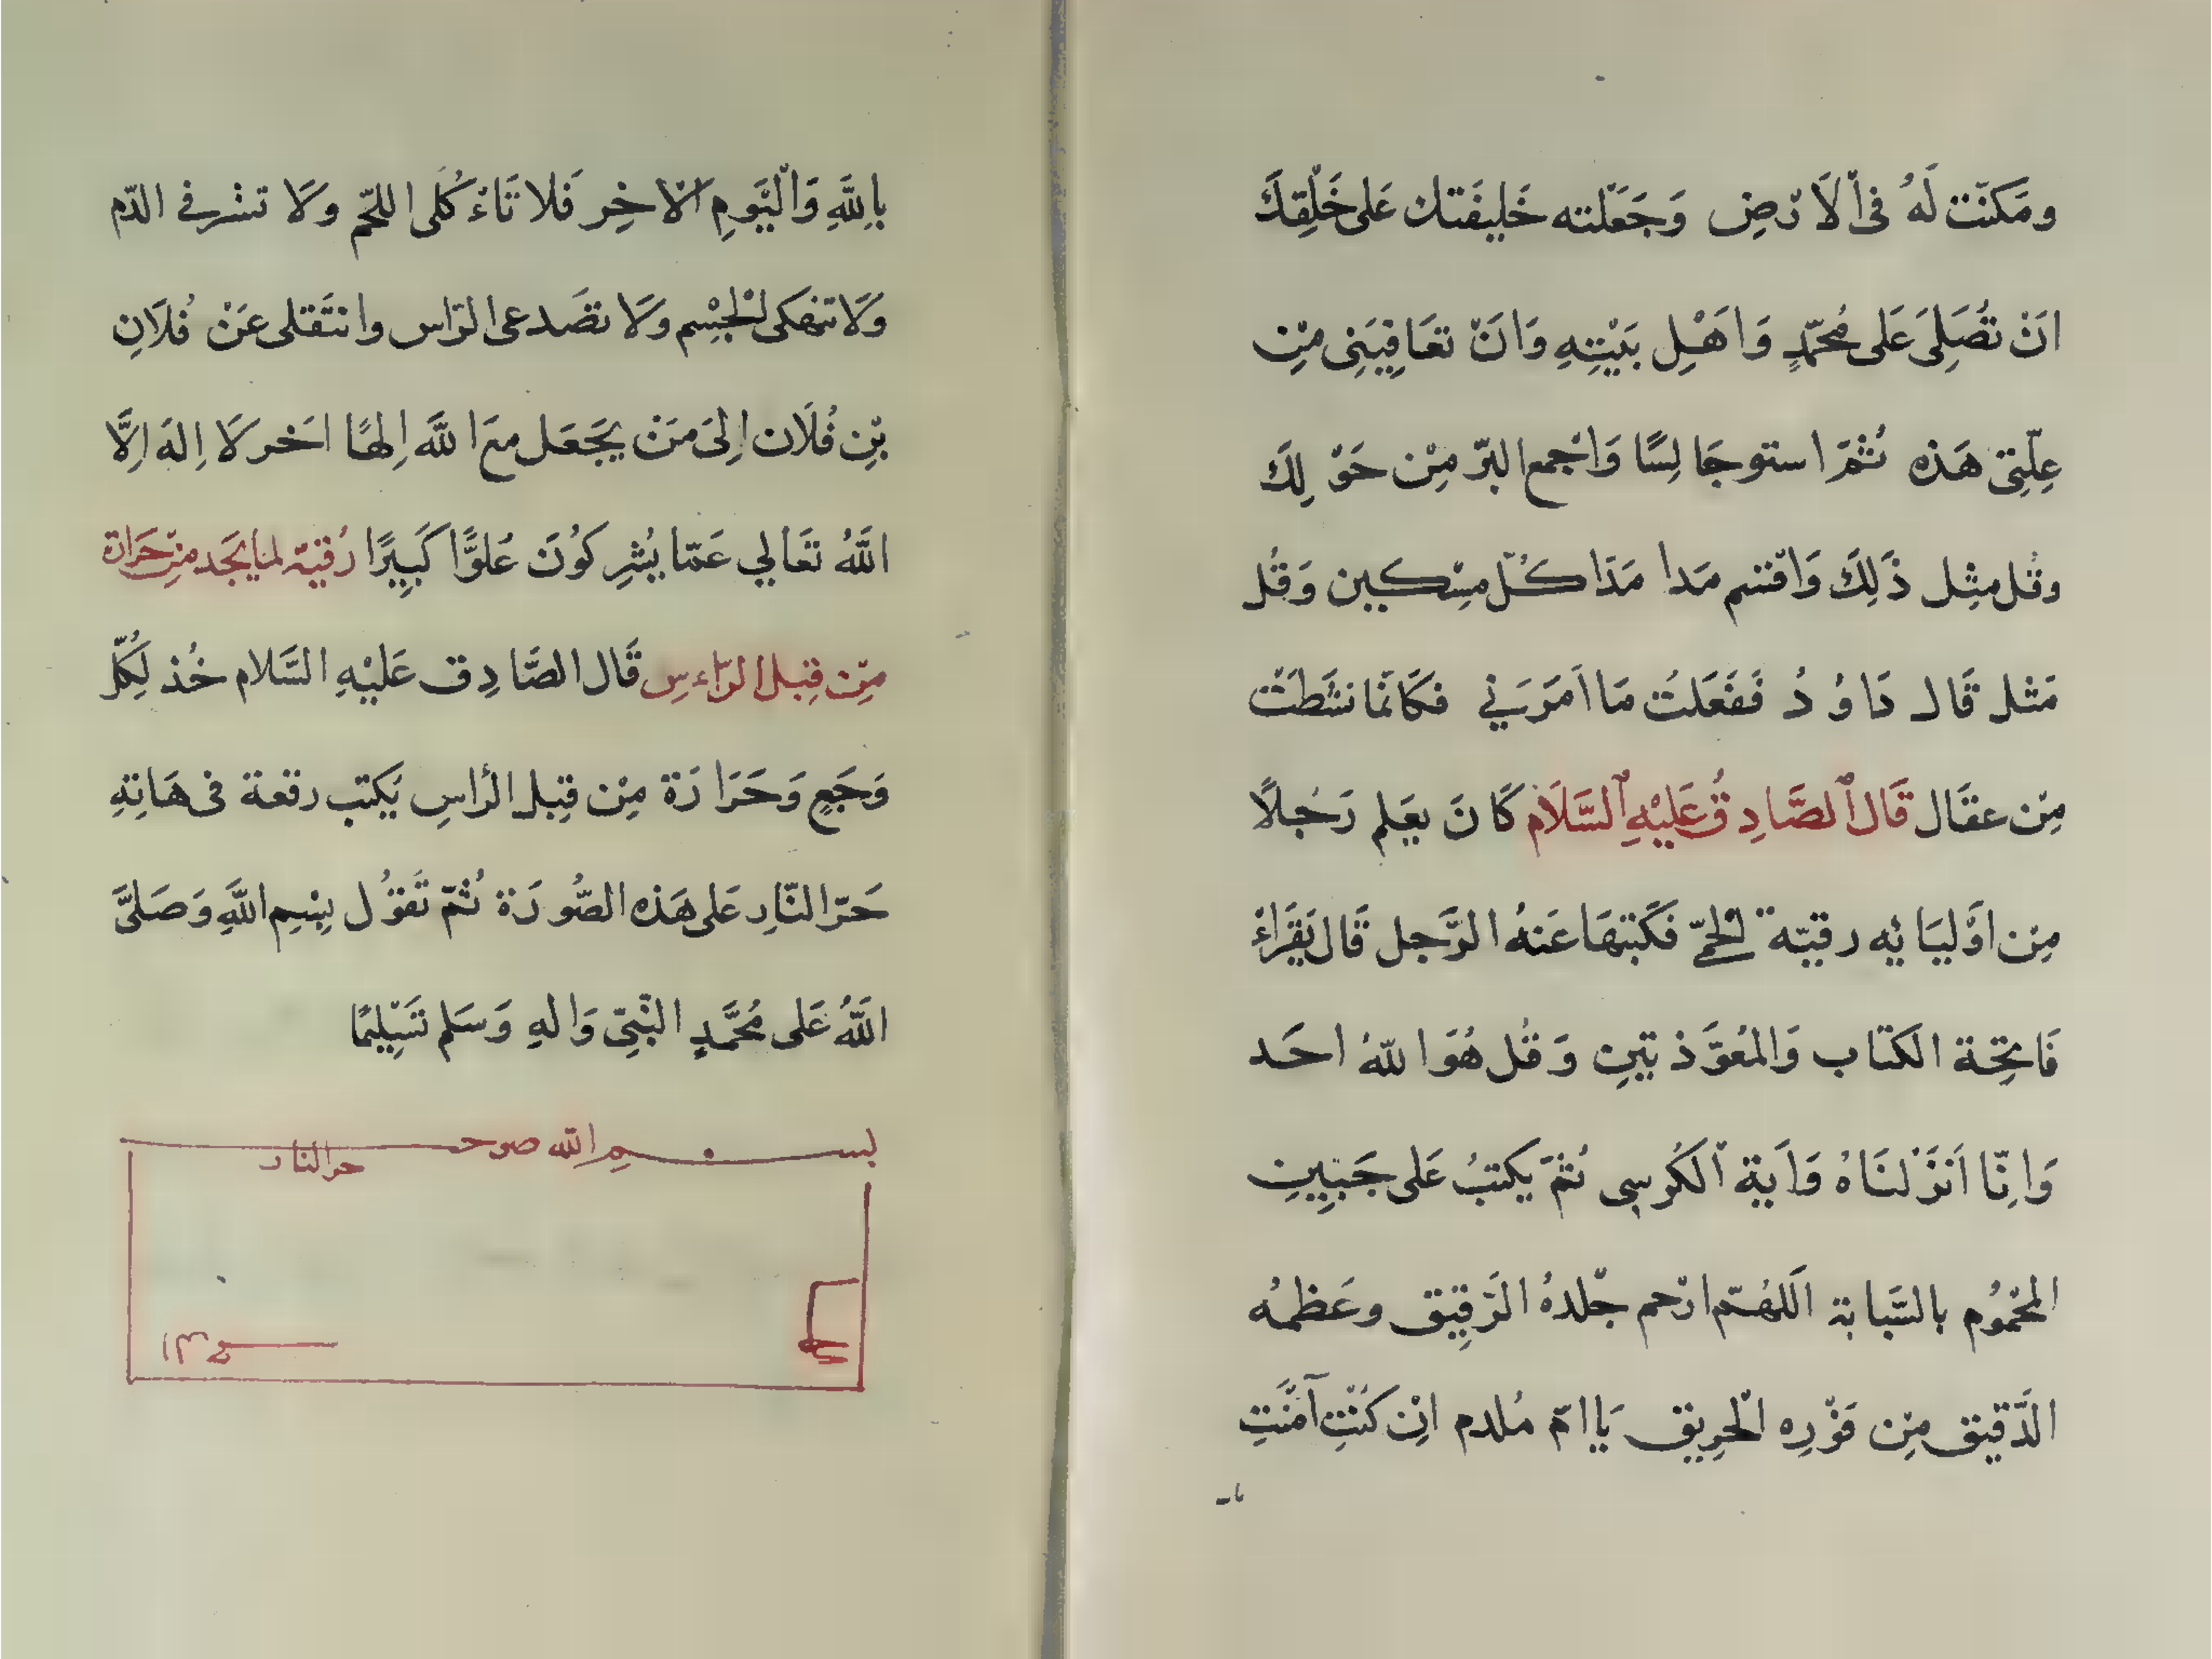 ومَكنّت لَهُ فى اْلَارْضِ وَجَعَلْته خَليفَتك عَلى خَلْقِكَ
انَ تُصَلِىَ عَلى مُحَمّدٍ وَاهْلِ بَيْتِهِ وَانَ تعَافِيَنِى مِن
عِلّتِى هَذه ثُمَّ استو جَالِسًا وَاجْمع البرّ مِنْ حَوْلِكَ
وقل مثِل ذَلِكَ وَاقسم مَدا مَدَا كُلّ مِسْكين وَقُل
مَثْل قَال دَاوُدُ فَفَعَلتُ مَا امَرَنى فكَانَما نشَطتُ
مِن عقَال قَال ٱلصَّادِقُ عَليْهِ ٱلسَّلَام كَانَ يعَلم رَجُلًا
مِن اوْليَائِه رقيّة الحمّى فكَتبهَا عَنهُ الرَّجل قَال يَقَراءُ
فَاتِحة الكتَاب وَالمعُوَّذتيِن وَقُل هُوَ اللّهُ احَد
وَانِّا اَنزَلنَاهُ وَايَة الكُرسى ثُمَّ يكتبُ عَلى جَبيِنِ
المحْمُوُم بالسَّبابَة اَللهُمّ ارْحم جْلدهُ الرَقِيق وعَظمُه
الدَّقيق مِن فَوْرِه الْحرِيق يَا امّ مُلدم انِ كُنْتِ آمَنْتِ
با
باِللَّهِ وَالْيَومِ اْلاخِر فَلا تَاءكُلى اللحّم ولَا تشرفى الدّم
وَلَا تنهكى الْجسْم ولَا تصَدعى الرّاس وانتَقلى عَنْ فُلَانِ
بْنِ فُلَان اِلىَ مَنَ يجَعَل معَ اللَّه اِلهًا اخَر لَا اِلهَ اِلَّا
اللَّهُ تعَالي عَمّا يُشرِكوُنَ عُلوًّا كَبيِرًا رُقيّة لما يجَد مِن حَرَارة
مِّن قِبل الرّاءسِ قَال الصَّادِق عَليْهِ السَّلام خُذ لِكُلّ
وَجَعٍ وَحَرَارَة مِنْ قِبل الراسِ يَكتب رقعة فى هَاتِهِ
حَرّ النّارِ عَلى هَذه الصُّورَة ثُمّ تَقوُل بِسْمِ اللَّهِ وَصَلىَّ
اللَّهُ عَلى مُحَمَّدٍ النّبِىّ وَالهِ وَسَلم تسَلِيمًا
بسم الله صوحـ
حرالنار